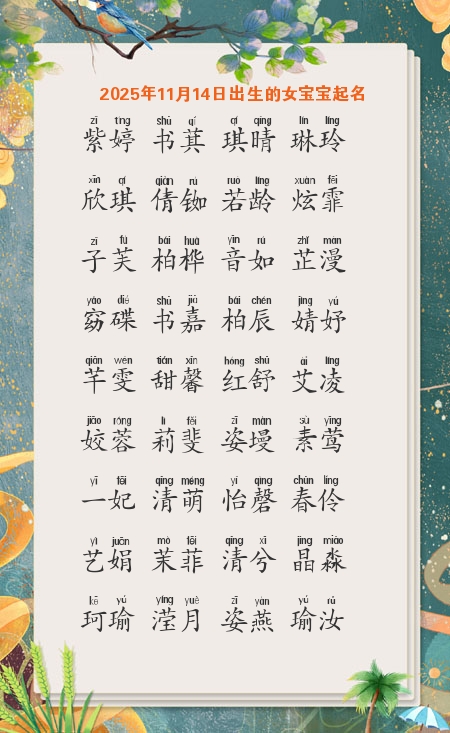 2025年11月14日出生的女宝宝起名
zǐ tíng shū qí qí qíng lín líng
紫婷 书萁 琪晴 琳玲
xīn qí qiàn rú ruò líng xuàn fēi
欣琪 倩铷 若龄 炫霏
zǐ fú bái huà yīn rú zhǐ màn
子芙 柏桦 音如 芷漫
yǎo dié shū jiā bái chén jìng yú
窈碟 书嘉 柏辰 婧妤
qiān wén tián xīn hóng shū ài líng
芊雯 甜馨 红舒 艾凌
jiāo róng lì fěi zī màn sù yīng
姣蓉 莉斐 姿墁 素莺
yī fēi qīng méng yí qìng chūn líng
一妃 清萌 怡磬 春伶
yì juān mò fēi qīng xī jīng miǎo
艺娟 茉菲 清兮 晶淼
kē yú yíng yuè zī yàn yú rǔ
珂瑜 滢月 姿燕 瑜汝